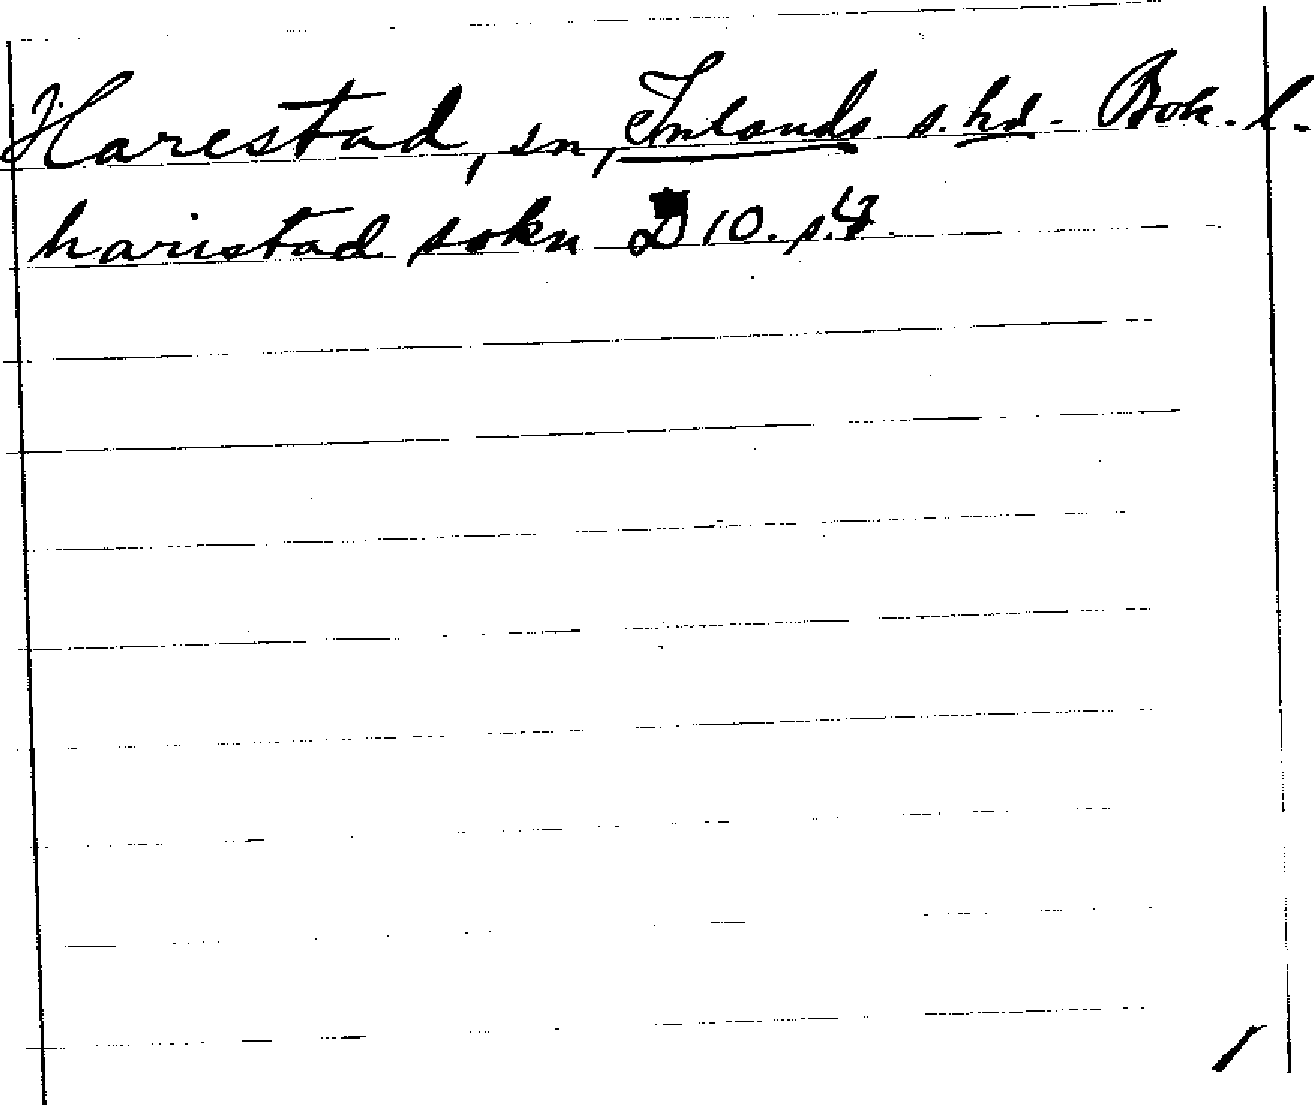 Harestad, sn, Inlands s. hd. Boh. l.
haristad sokn D 10. s.